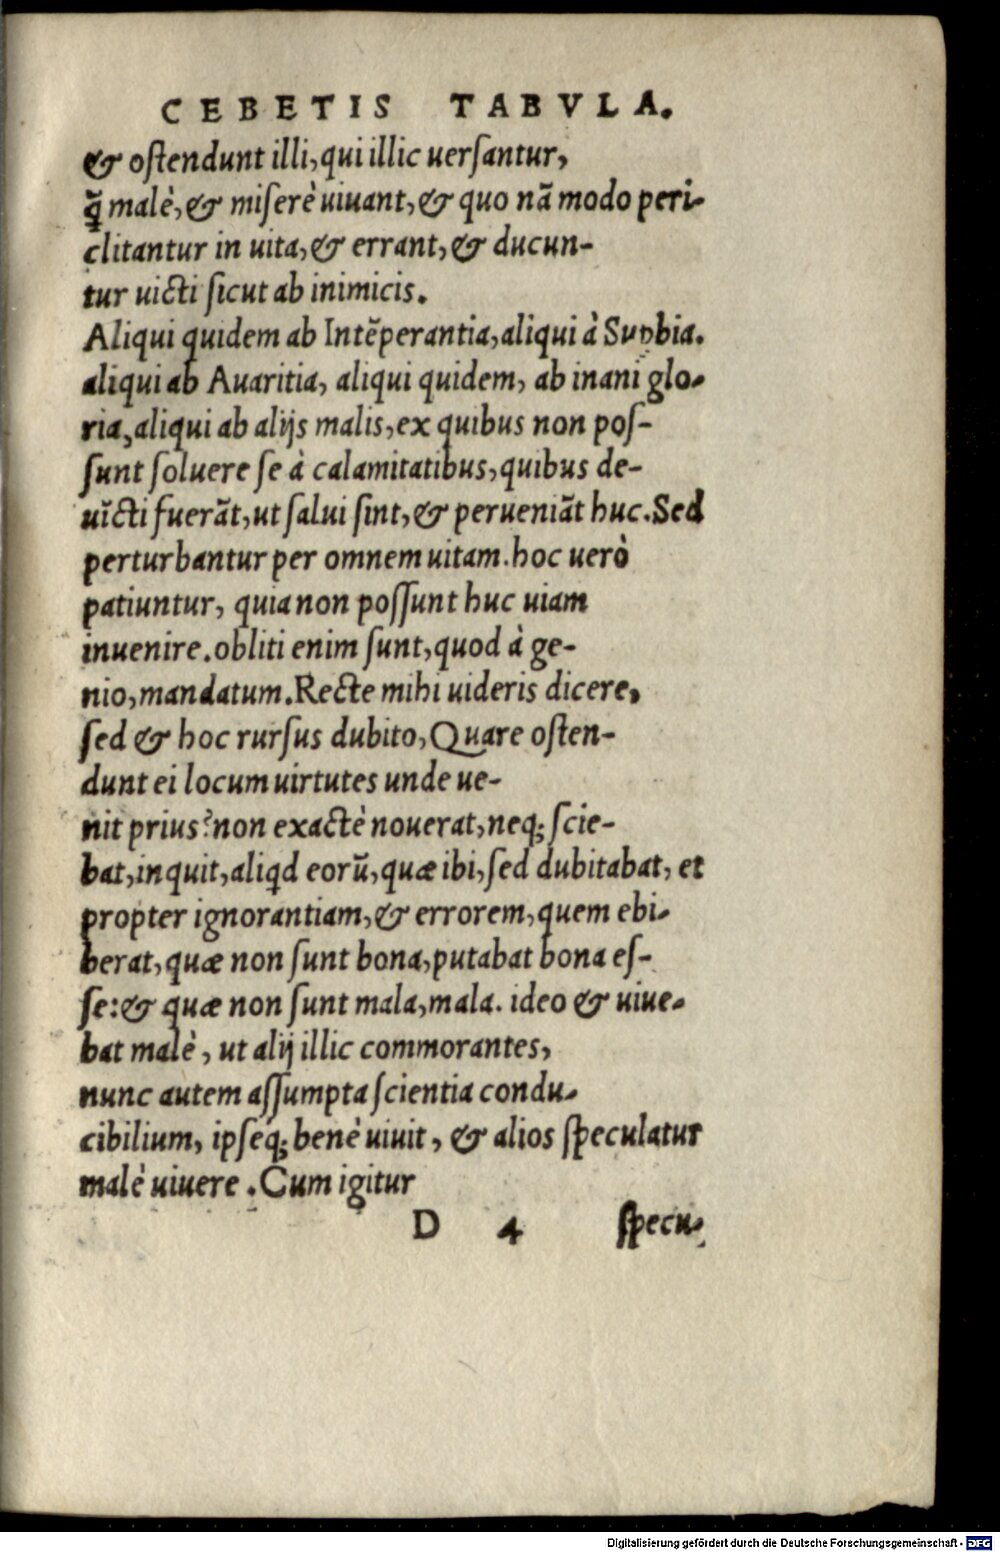 CEBETIS TABVLA.
& oſtendunt illi, qui illic uerſantur,
q̄̃ malè, & miſerè uiuant, & quo nā modo peri-
clitantur in uita, & errant, & ducun-
tur uicti ſicut ab inimicis.
Aliqui quidem ab Intēperantia, aliqui à Supbia.
aliqui ab Auaritia, aliqui quidem, ab inani glo-
ria, aliqui ab alijs malis, ex quibus non poſ-
ſunt ſoluere ſe à calamitatibus, quibus de-
uīcti fuerāt, ut ſalui ſint, & perueniāt huc. Sed
perturbantur per omnem uitam. hoc uerò
patiuntur, quia non poſſunt huc uiam
inuenire. obliti enim ſunt, quod à ge-
nio, mandatum. Recte mihi uideris dicere,
ſed & hoc rurſus dubito, Quare oſten-
dunt ei locum uirtutes unde ue-
nit prius? non exactè nouerat, neq; ſcie-
bat, inquit, aliqd eorū, quæ ibi, ſed dubitabat, et
propter ignorantiam, & errorem, quem ebi-
berat, quæ non ſunt bona, putabat bona eſ-
ſe: & quæ non ſunt mala, mala. ideo & uiue-
bat malè, ut alij illic commorantes,
nunc autem aſſumpta ſcientia condu-
cibilium, ipſeq; benè uiuit, & alios ſpeculatur
malè uiuere. Cum igitur
D 4 ſpecu-
Digitalisierung gefördert durch die Deutsche Forschungsgemeinschaft - DFG